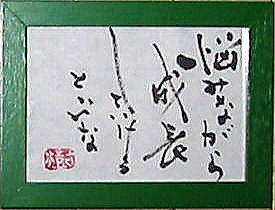 悩みながら
成長
していける
といいな